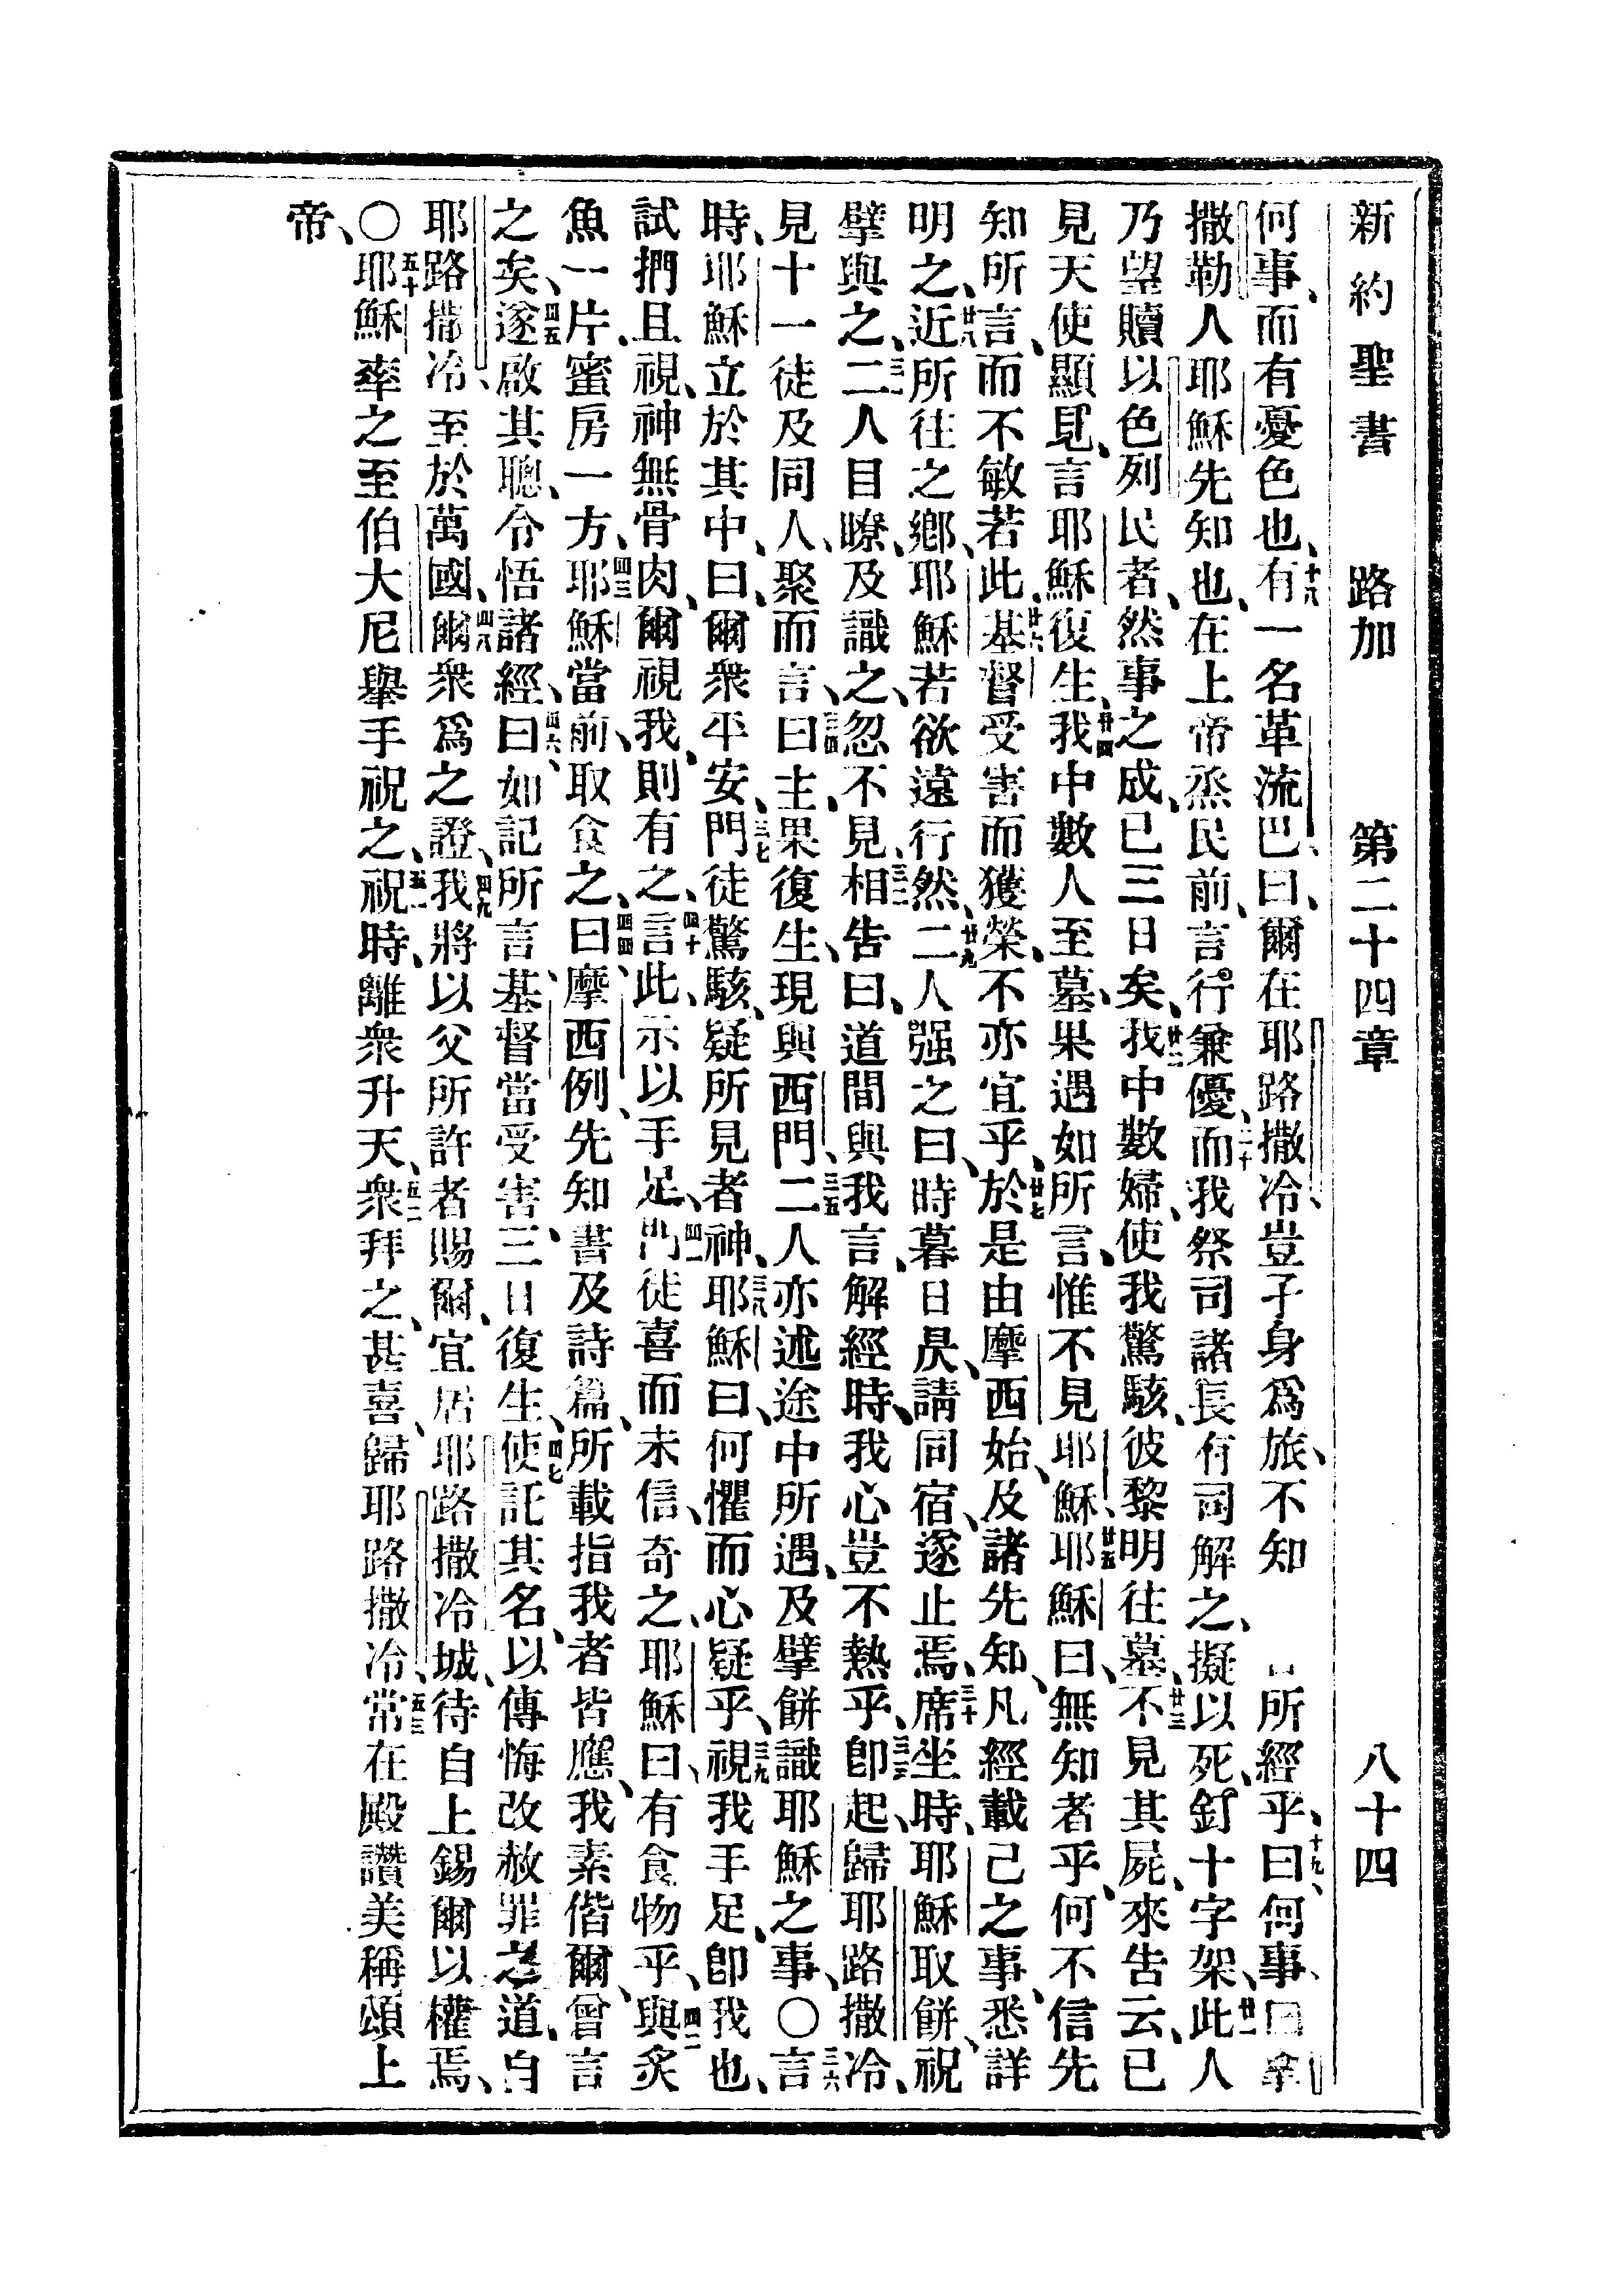 新約聖書 路加 第二十四章 八十四
何事、而有憂色也、十八有一名革流巴、曰、爾在耶路撒冷、豈孑身爲旅、不知所經乎、十九曰、何事、曰、拿
撒勒人耶穌、先知也、在上帝烝民前、言行兼優、二十而我祭司諸長有司解之、擬以死、釘十字架、廿一此人
乃望贖以色列民者、然事之成、已三日矣、廿二我中數婦、使我驚駭、彼黎明往墓、廿三不見其屍、來告云、已
見天使顯見、言耶穌復生、廿四我中數人至墓、果遇如所言、惟不見耶穌、廿五耶穌曰、無知者乎、何不信先
知所言、而不敏若此、廿六基督受害而獲榮、不亦宜乎、廿七於是由摩西始、及諸先知、凡經載己之事、悉詳
明之、廿八近所往之鄉、耶穌若欲遠行然、廿九二人强之曰、時暮日昃、請同宿、遂止焉、三十席坐時、耶穌取餅、祝
擘與之、三一二人目瞭、及識之、忽不見、三二相告曰、道間與我言、解經時、我心豈不熱乎、三三卽起、歸耶路撒冷、
見十一徒及同人、聚而言、三四曰、主果復生、現與西門、三五二人亦述途中所遇、及擘餅識耶穌之事、〇三六言
時、耶穌立於其中、曰、爾衆平安、三七門徒驚駭、疑所見者神、三八耶穌曰、何懼而心疑乎、三九視我手足、卽我也、
試捫且視、神無骨肉、爾視我、則有之、四十言此、示以手足、四一門徒喜而未信、奇之、耶穌曰、有食物乎、四二與炙
魚一片、蜜房一方、四三耶穌當前、取食之、四四曰、摩西例、先知書及詩篇、所載指我者皆應、我素偕爾、曾言
之矣、四五遂啟其聰、令悟諸經、四六曰、如記所言、基督當受害、三日復生、四七使託其名、以傳悔改赦罪之道、自
耶路撒冷、至於萬國、四八爾衆爲之證、四九我將以父所許者賜爾、宜居耶路撒冷城、待自上錫爾以權焉、
〇五十耶穌率之至伯大尼、舉手祝之、五一祝時、離衆升天、五二衆拜之、甚喜、歸耶路撒冷、五三常在殿讚美稱頌上
帝、